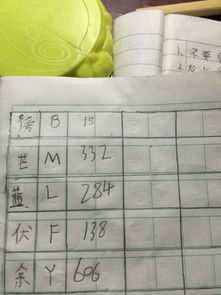 1. 不要
榜 B 15
芒 M 332
蓝 L 284
伏 F 138
余 Y 606